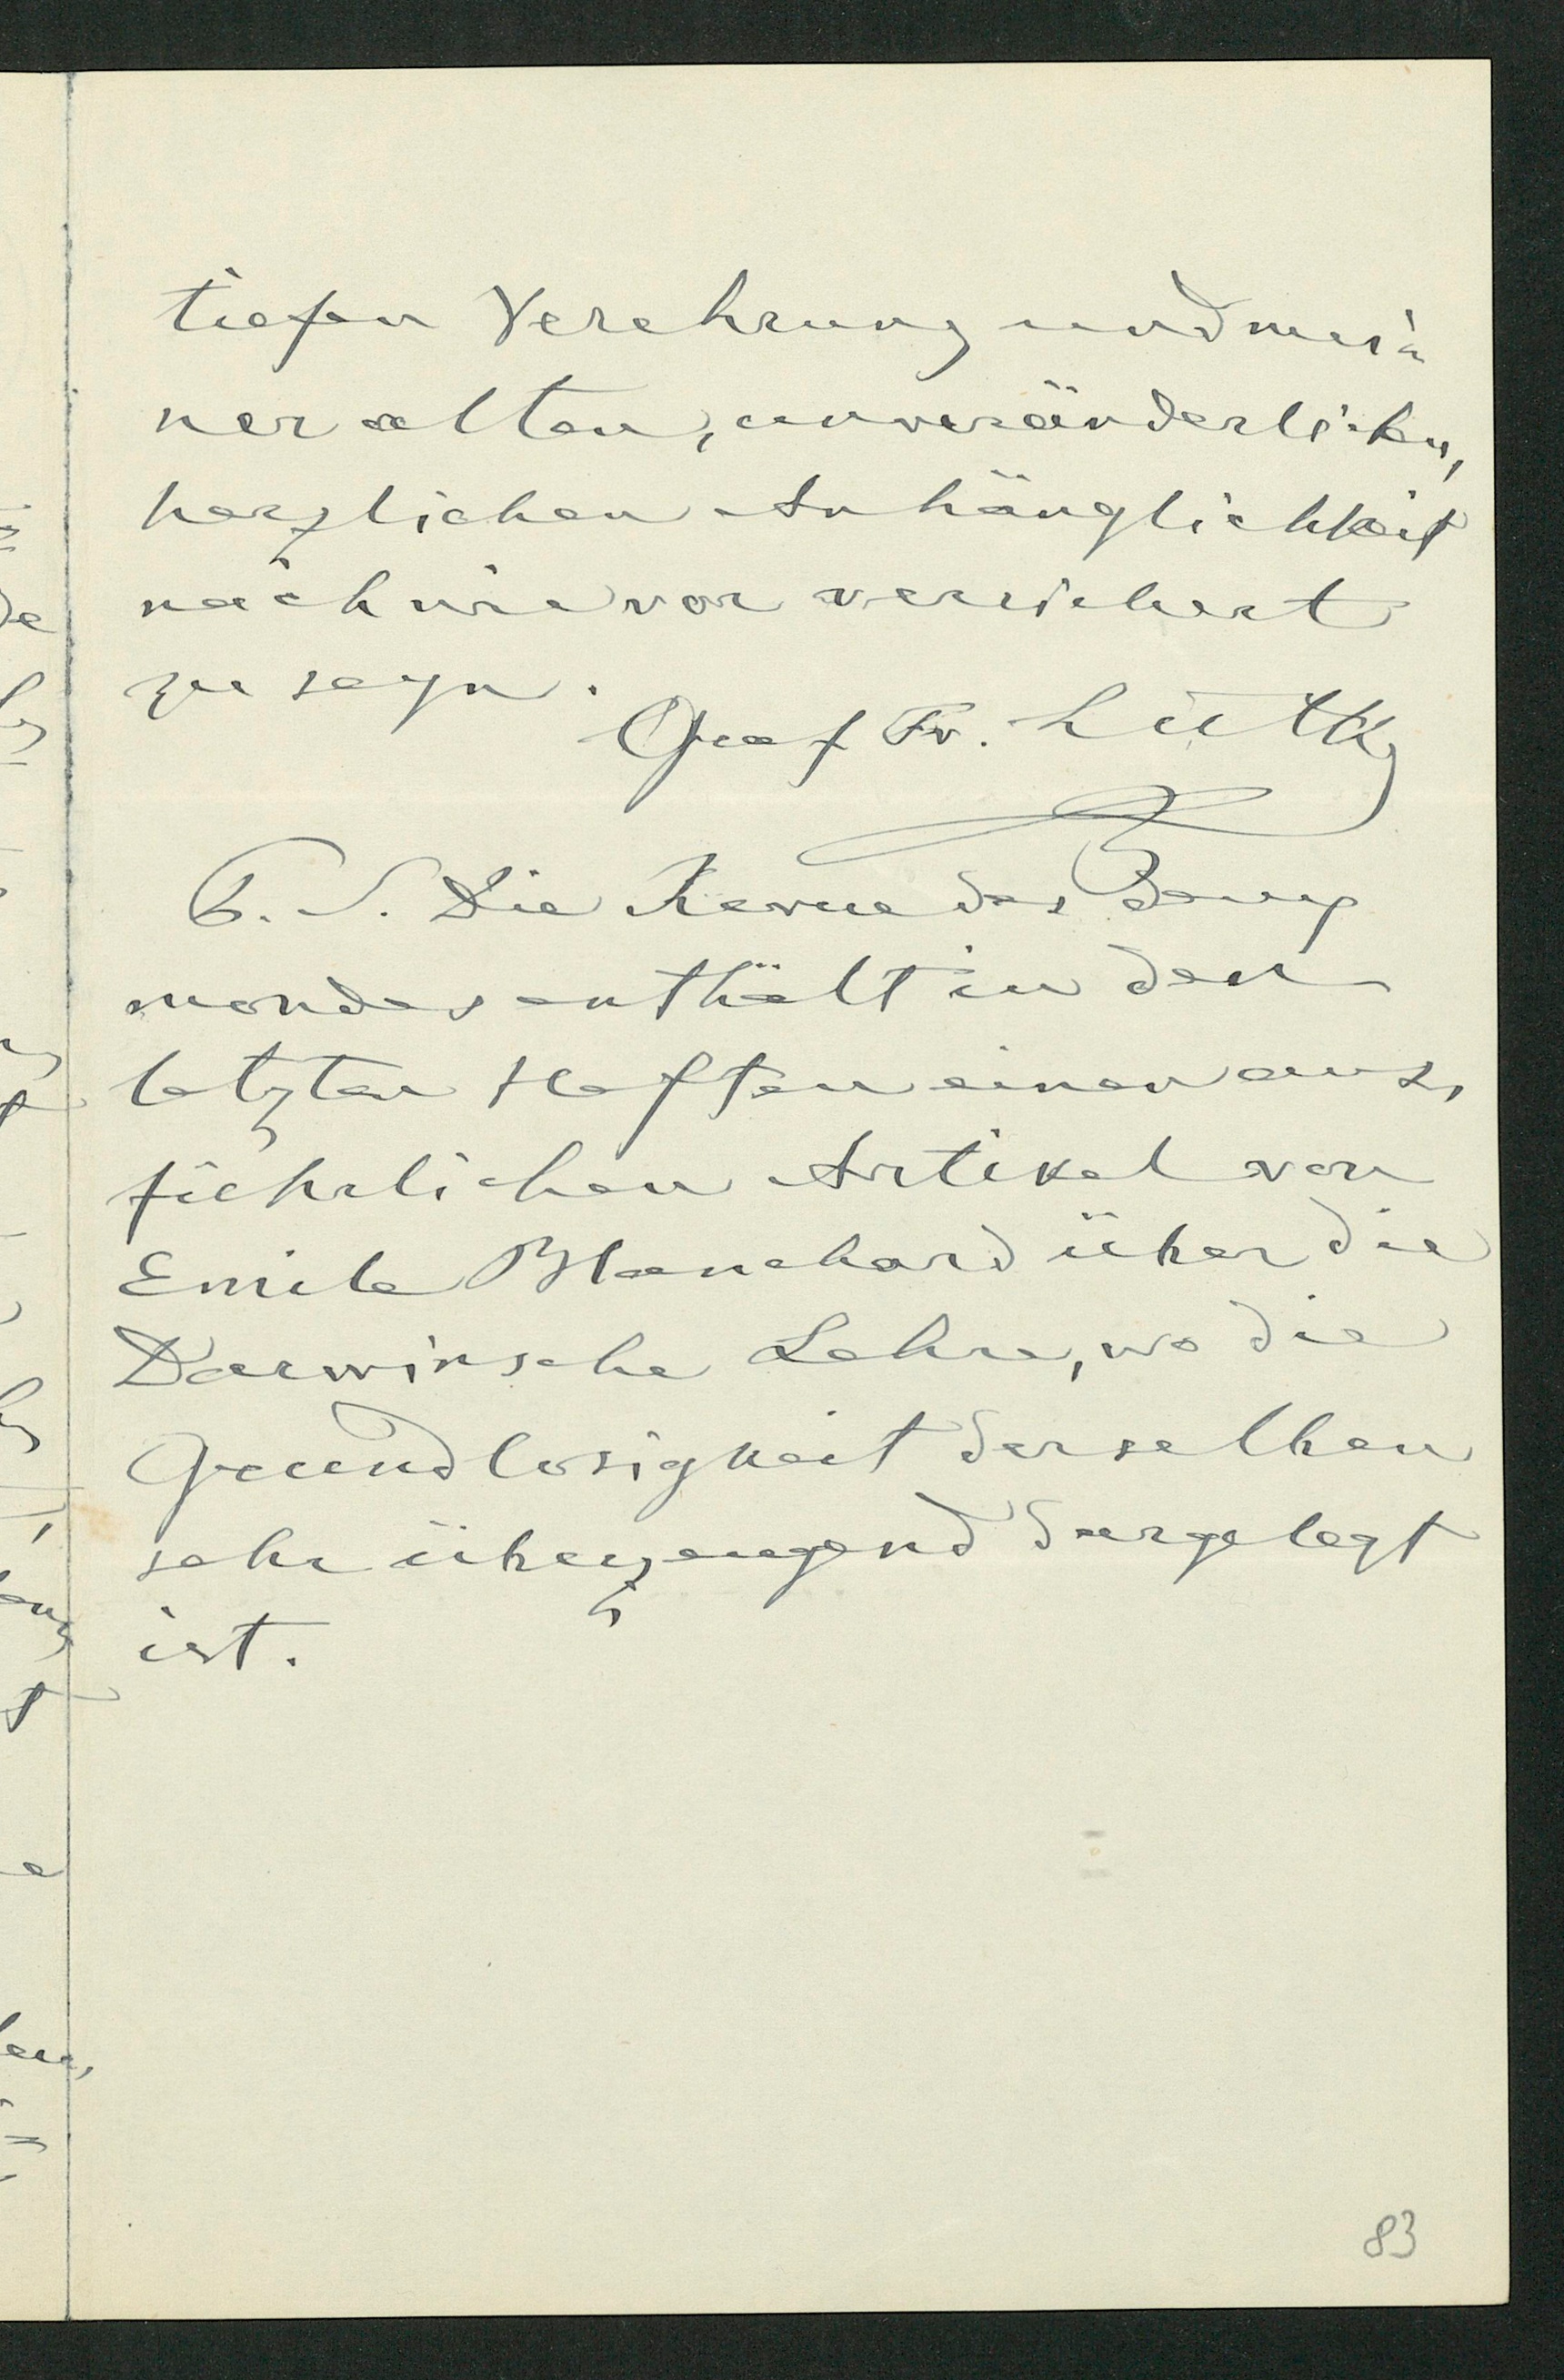 tiefen Verehrung und mei-
ner alten, unveränderlichen,
herzlichen Anhänglichkeit
nach wie vor versichert
zu seyn.
Graf Fr. Lütke
P. S. Die Revue des deux
mondes enthält in den
letzten Heften einen aus-
führlichen Artikel von
Emile Blanchard über die
Darwinsche Lehre, wo die
Grundlosigkeit derselben
sehr überzeugend dargelegt
ist.
83